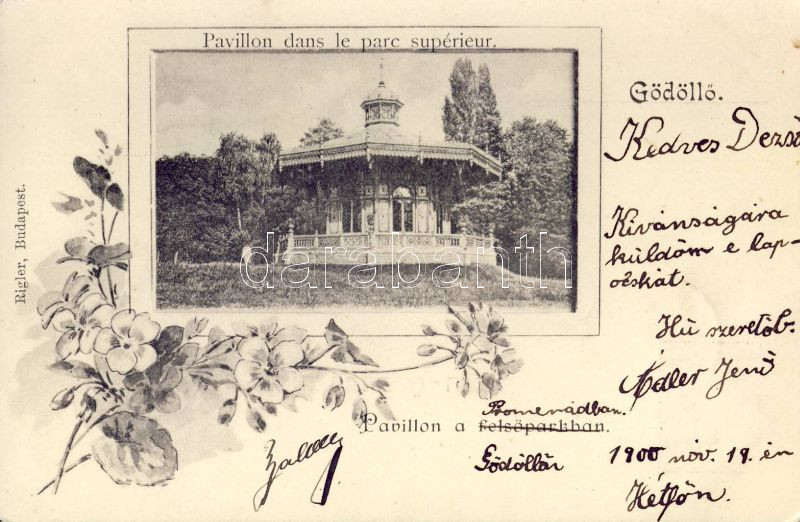 Pavillon dans le parc supérieur.
Gödöllő.
Kedves Dezső
Kivánságára
küldöm e lap-
ocskát.
Hű szeretőb.
Adler Jenő
Promenádban.
Pavillon a felsőparkban.
Gödöllőn 1900 nov. 19. én
Hétfőn.
Rigler, Budapest.
darabanth